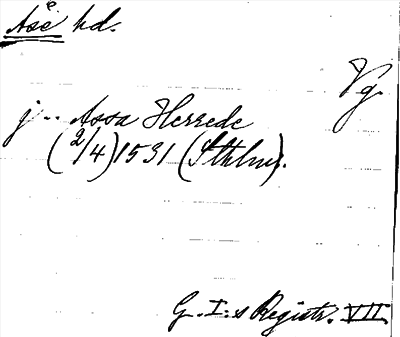 Åse hd.
Vg
j - - Assa Herrede
(2/4) 1531 (Sthlm).
G. I:s Registr. VII.